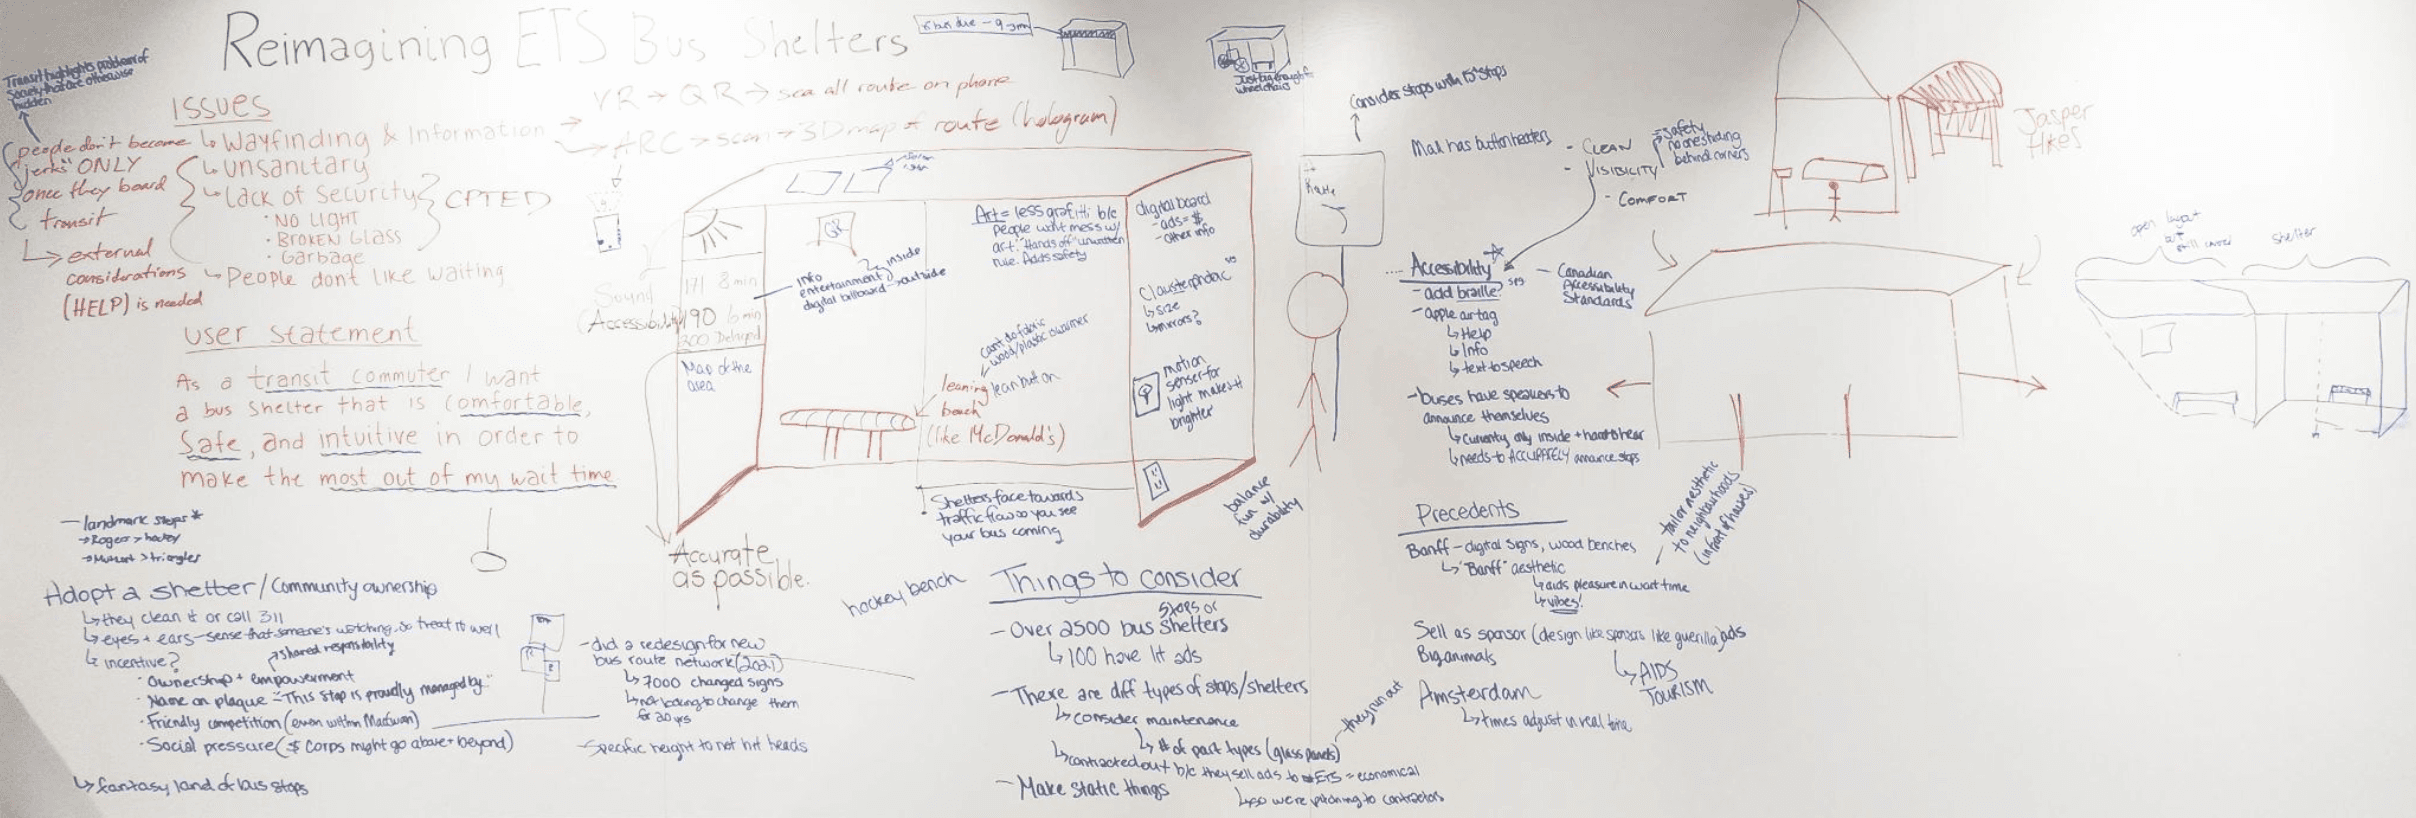 Reimagining ETS Bus Shelters
x bus due - 9 min
Just big enough for
wheelchairs
Transit highlights problems of
society that are otherwise
hidden
people don't become
"jerks" ONLY
once they board
transit
↳ external
considerations
(HELP) is needed
ISSUES
↳ Wayfinding & Information
↳ Unsanitary
↳ Lack of Security
· NO LIGHT
· BROKEN GLASS
· Garbage
CPTED
↳ People dont like waiting
VR → QR → see all route on phone
ARC → scan → 3D map of route (hologram)
User Statement
As a transit commuter I want
a bus shelter that is comfortable,
Safe, and intuitive in order to
make the most out of my wait time
- landmark stops*
→ Rogers > hockey
→ Muttart > triangles
Adopt a shelter / Community ownership
↳ they clean it or call 311
↳ eyes + ears - sense that someone's watching, so treat it well
↳ incentive?
↗ shared responsibility
· Ownership + empowerment
· Name on plaque - "This stop is proudly managed by"
· Friendly competition (even within MacEwan)
· Social pressure ($ corps might go above + beyond)
↳ fantasy land of bus stops
Sound
(Accessibility)
171 8 min
190 6 min
300 Delayed
Map of the
area
Accurate
as possible.
QR
Info
entertainment
digital billboard
inside
outside
Art = less grafitti b/c
people won't mess w/
art. "Hands off" unwritten
rule. Adds safety
can't do fabric
wood/plastic warmer
leaning
bench
(like McDonald's)
lean button
digital board
- ads = $
- other info
Claustrophobic
↳ size
↳ mirrors?
motion
senser for
light makes it
brighter
Shelters face towards
traffic flow so you see
your bus coming
balance
fun w/
durability
hockey bench
- did a redesign for new
bus route network (2021)
↳ 7000 changed signs
↳ not looking to change them
for 20 yrs
- specific height to not hit heads
Things to consider
- Over 2500 bus stops or shelters
↳ 100 have lit ads
- There are diff types of stops/shelters
↳ consider maintenance
↳ # of part types (glass panels)
they run out
↳ contracted out b/c they sell ads to ETS = economical
↳ so were pitching to contractors
- Make static things
Consider stops with 15+ stops
Route
Mall has button heaters
- CLEAN
- VISIBILITY
- COMFORT
= safety
no one hiding
behind corners
Accessibility
- add braille
- apple air tag
↳ Help
↳ Info
↳ text to speech
- Canadian
Accessibility
Standards
- buses have speakers to
announce themselves
↳ currently only inside + hard to hear
↳ needs to ACCURATELY announce stops
Precedents
Banff - digital signs, wood benches
↳ "Banff" aesthetic
↳ aids pleasure in wait time
↳ vibes!
tailor aesthetic
to neighbourhoods
(in front of houses)
Sell as sponsor (design like sponsors like guerilla) ads
Big animals
↳ AIDS
TOURISM
Amsterdam
↳ times adjust in real time
Jasper
likes
open layout
but
still covered
shelter